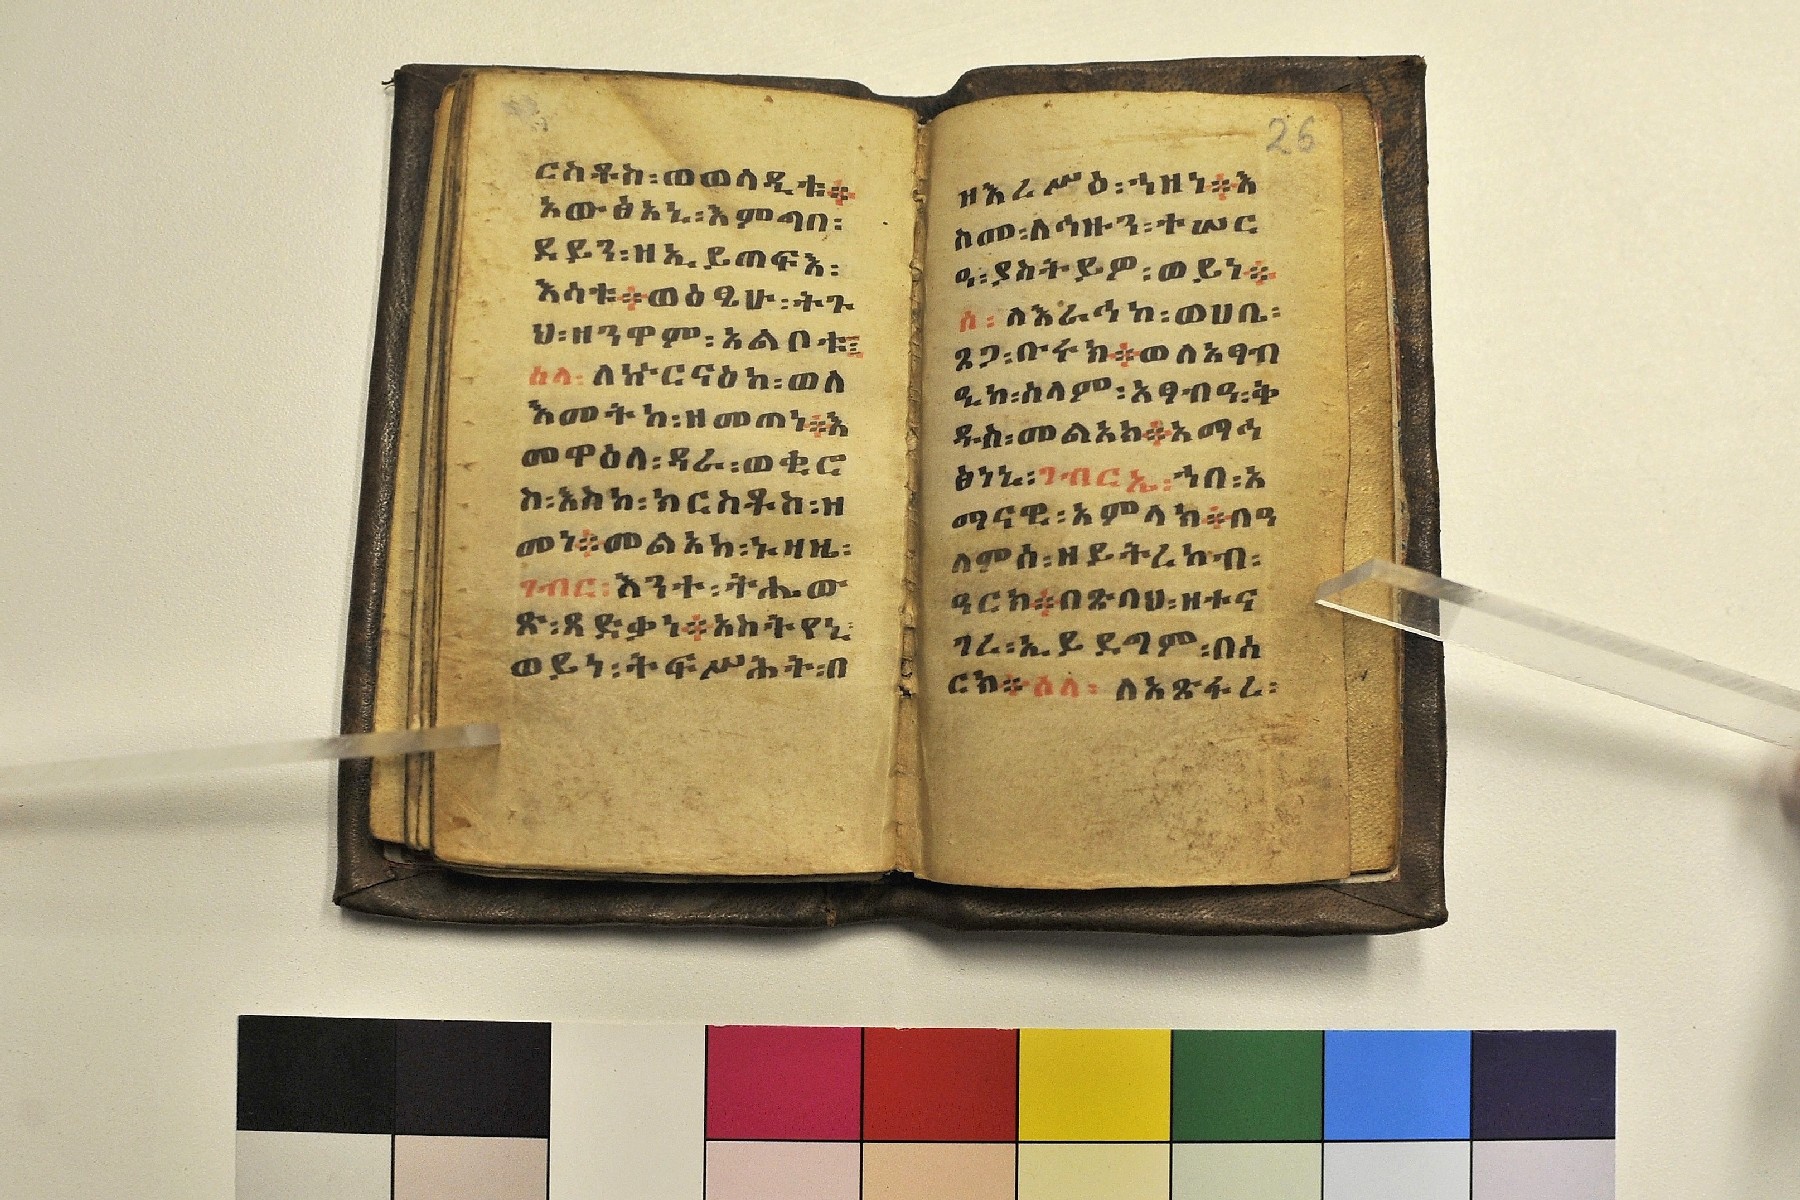 ርስቶስ፡ወወላዲቱ፨
አውፅአኒ፡እምጣበ፡
ደይን፡ዘኢይጠፍእ፡
እሳቱ፨ወዕፄሁ፡ትጉ
ህ፡ዘንዋም፡አልቦቱ፨
ሰላ፡ለኵርናዕከ፡ወለ
እመትከ፡ዘመጠነ፨እ
መዋዕለ፡ዳራ፡ወቂሮ
ስ፡እስከ፡ክርስቶስ፡ዘ
መነ፨መልአከ፡ኑዛዜ፡
ገብር፡እንተ፡ትሔው
ጽ፡ጻድቃነ፨አስትየኒ
ወይነ፡ትፍሥሕት፡በ
26
ዝእረሥዕ፡ኀዘነ፨እ
ስመ፡ለኅዙን፡ተሠር
ዓ፡ያስትይዎ፡ወይነ፨
ሰ፡ለእራኅከ፡ወሀቢ፡
ጸጋ፡ቡሩክ፨ወለአፃብ
ዒከ፡ሰላም፡አፃብዓ፡ቅ
ዱስ፡መልአክ፨አማኅ
ፅነኒ፡ገብርኤ፡ኀበ፡አ
ማናዊ፡አምላክ፨በዓ
ለምሰ፡ዘይትረከብ፡
ዓርክ፨በጽባህ፡ዘተና
ገረ፡ኢይደግም፡በሰ
ርክ፨ሰላ፡ለአጽፋረ፡